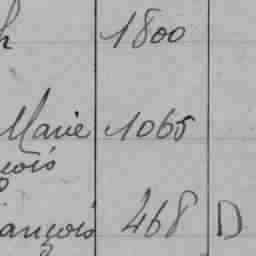 h 1800
Marie 1065
çois
ançois 468 D